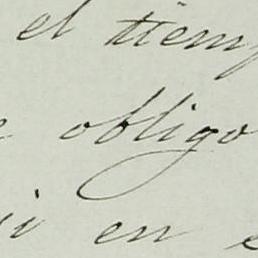 el tiemp
obligo
en